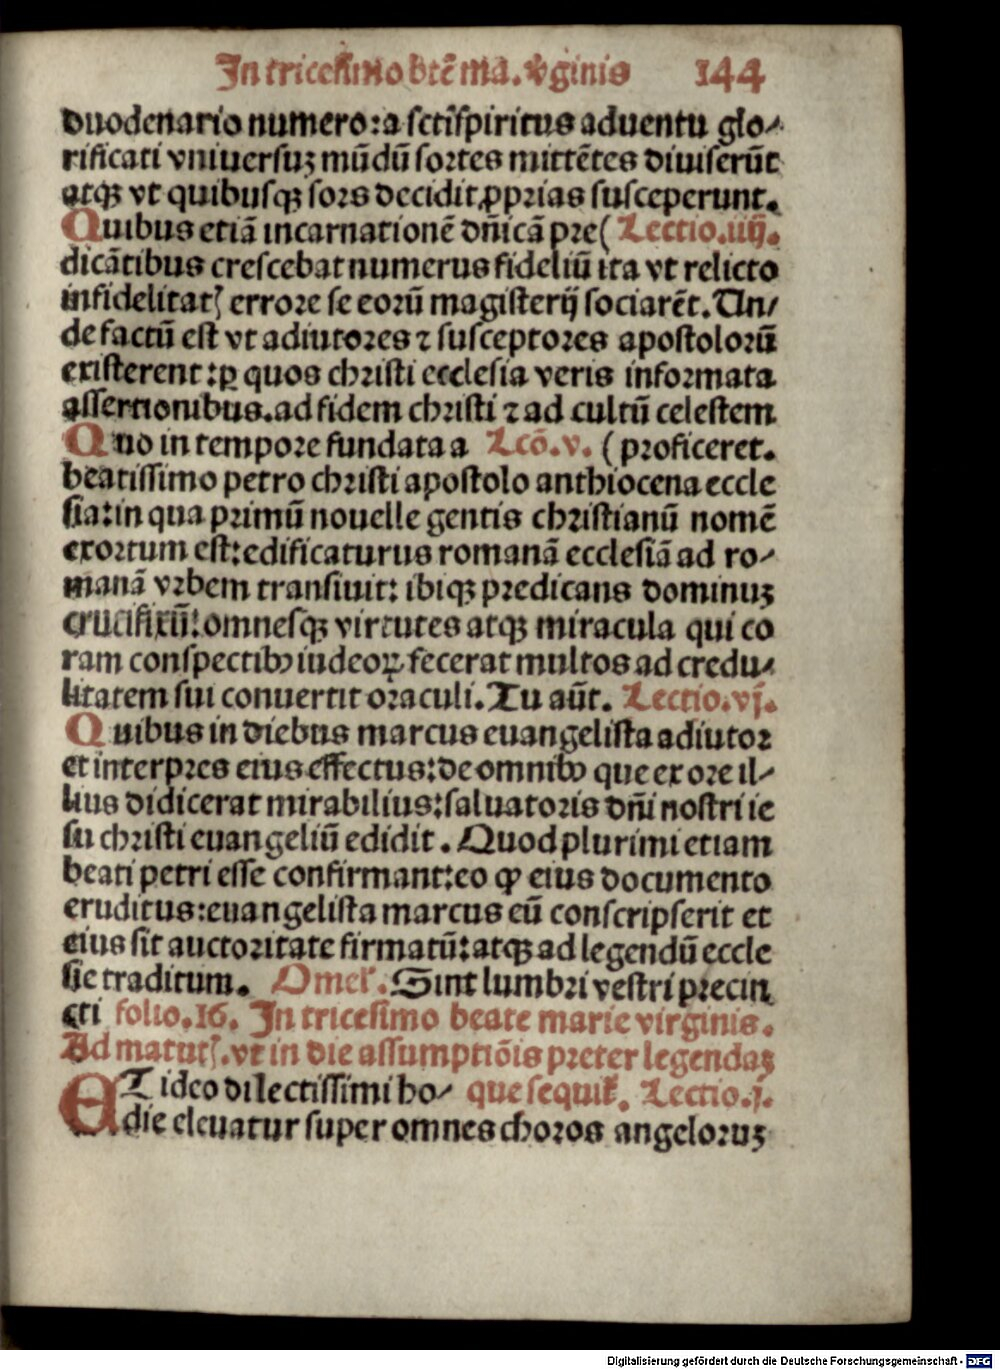 In tricesimo btē ma. v̾ginis 144
duodenario numero: a sctīspiritus aduentu glo⸗
rificati vniuersuꝫ mūdū sortes mittētes diuiserūt
atqꝫ vt quibusqꝫ sors decidit ꝓprias susceperunt.
Quibus etiā incarnationē dn̄icā pre( Lectio.iiij.
dicātibus crescebat numerus fideliū ita vt relicto
infidelitatꝭ errore se eorū magisterij sociarēt. Un⸗
de factū est vt adiutores ⁊ susceptores apostolorū
existerent: ꝑ quos christi ecclesia veris informata
assertionibus. ad fidem christi ⁊ ad cultū celestem
Quo in tempore fundata a Lcō.v. ( proficeret.
beatissimo petro christi apostolo anthiocena eccle
sia: in qua primū nouelle gentis christianū nomē
exortum est: edificaturus romanā ecclesiā ad ro⸗
manā vrbem transiuit: ibiqꝫ predicans dominuꝫ
crucifixū: omnesqꝫ virtutes atqꝫ miracula qui co
ram conspectibꝰ iudeoꝝ fecerat multos ad credu⸗
litatem sui conuertit oraculi. Tu aūt. Lectio.vj.
Quibus in diebus marcus euangelista adiutor
et interpres eius effectus: de omnibꝰ que ex ore il⸗
lius didicerat mirabilius: saluatoris dn̄i nostri ie
su christi euangeliū edidit. Quod plurimi etiam
beati petri esse confirmant: eo ꝙ eius documento
eruditus: euangelista marcus eū conscripserit et
eius sit auctoritate firmatū: atqꝫ ad legendū eccle
sie traditum. Omel'. Sint lumbri vestri precin
cti folio.16. In tricesimo beate marie virginis.
Ad matutꝭ. vt in die assumptiōis preter legendaꝫ
ET ideo dilectissimi ho⸗ que sequit̄. Lectio.j.
die eleuatur super omnes choros angeloruꝫ
Digitalisierung gefördert durch die Deutsche Forschungsgemeinschaft - DFG